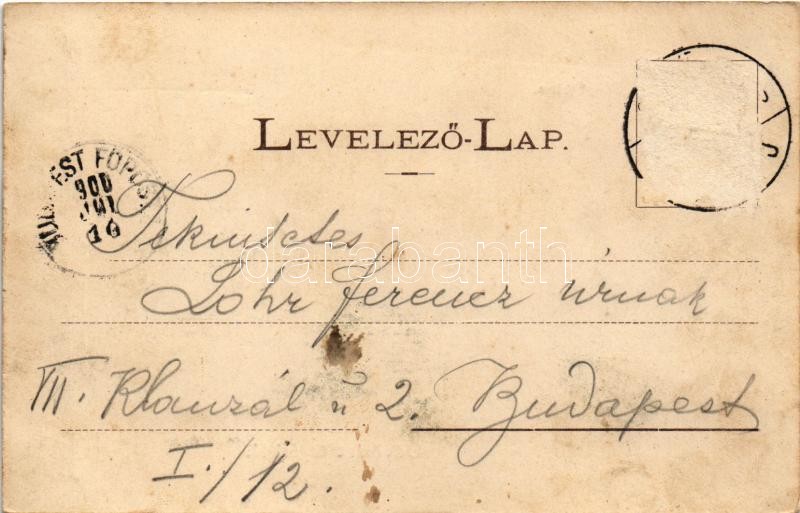 LEVELEZŐ-LAP.
BUDAPEST FŐPOS
900
JUL
10
Tekintetes
Lohr Ferencz úrnak
VII. Klauzál u 2. Budapest
I./12.
darabanth